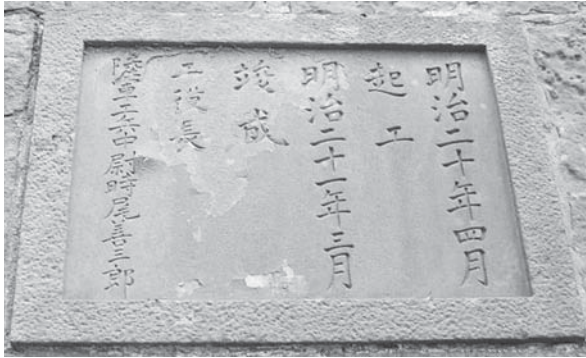 明治二十年四月
起工
明治二十一年三月
竣成
工役長
陸軍工兵中尉時尾善三郎